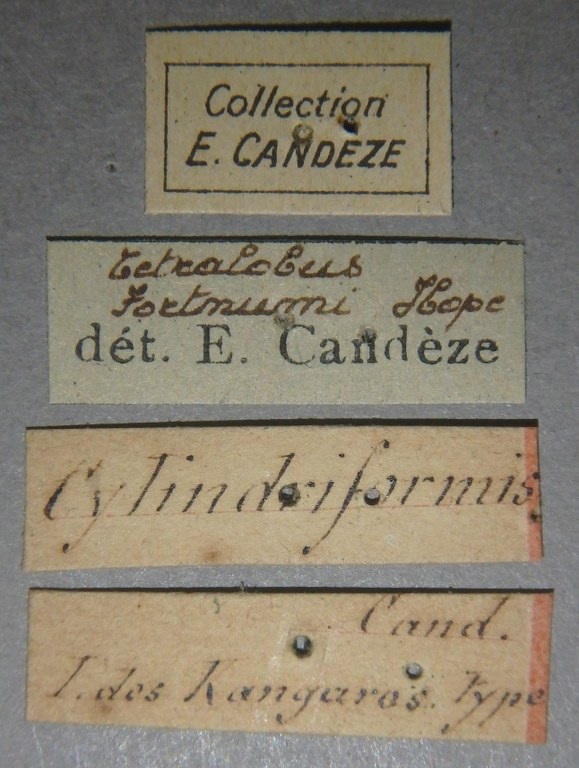 Collection
E. CANDÈZE
tetralobus
Fortnumi Hope
dét. E. Candèze
Cylindriformis
Cand.
I. des Kangaros. Type